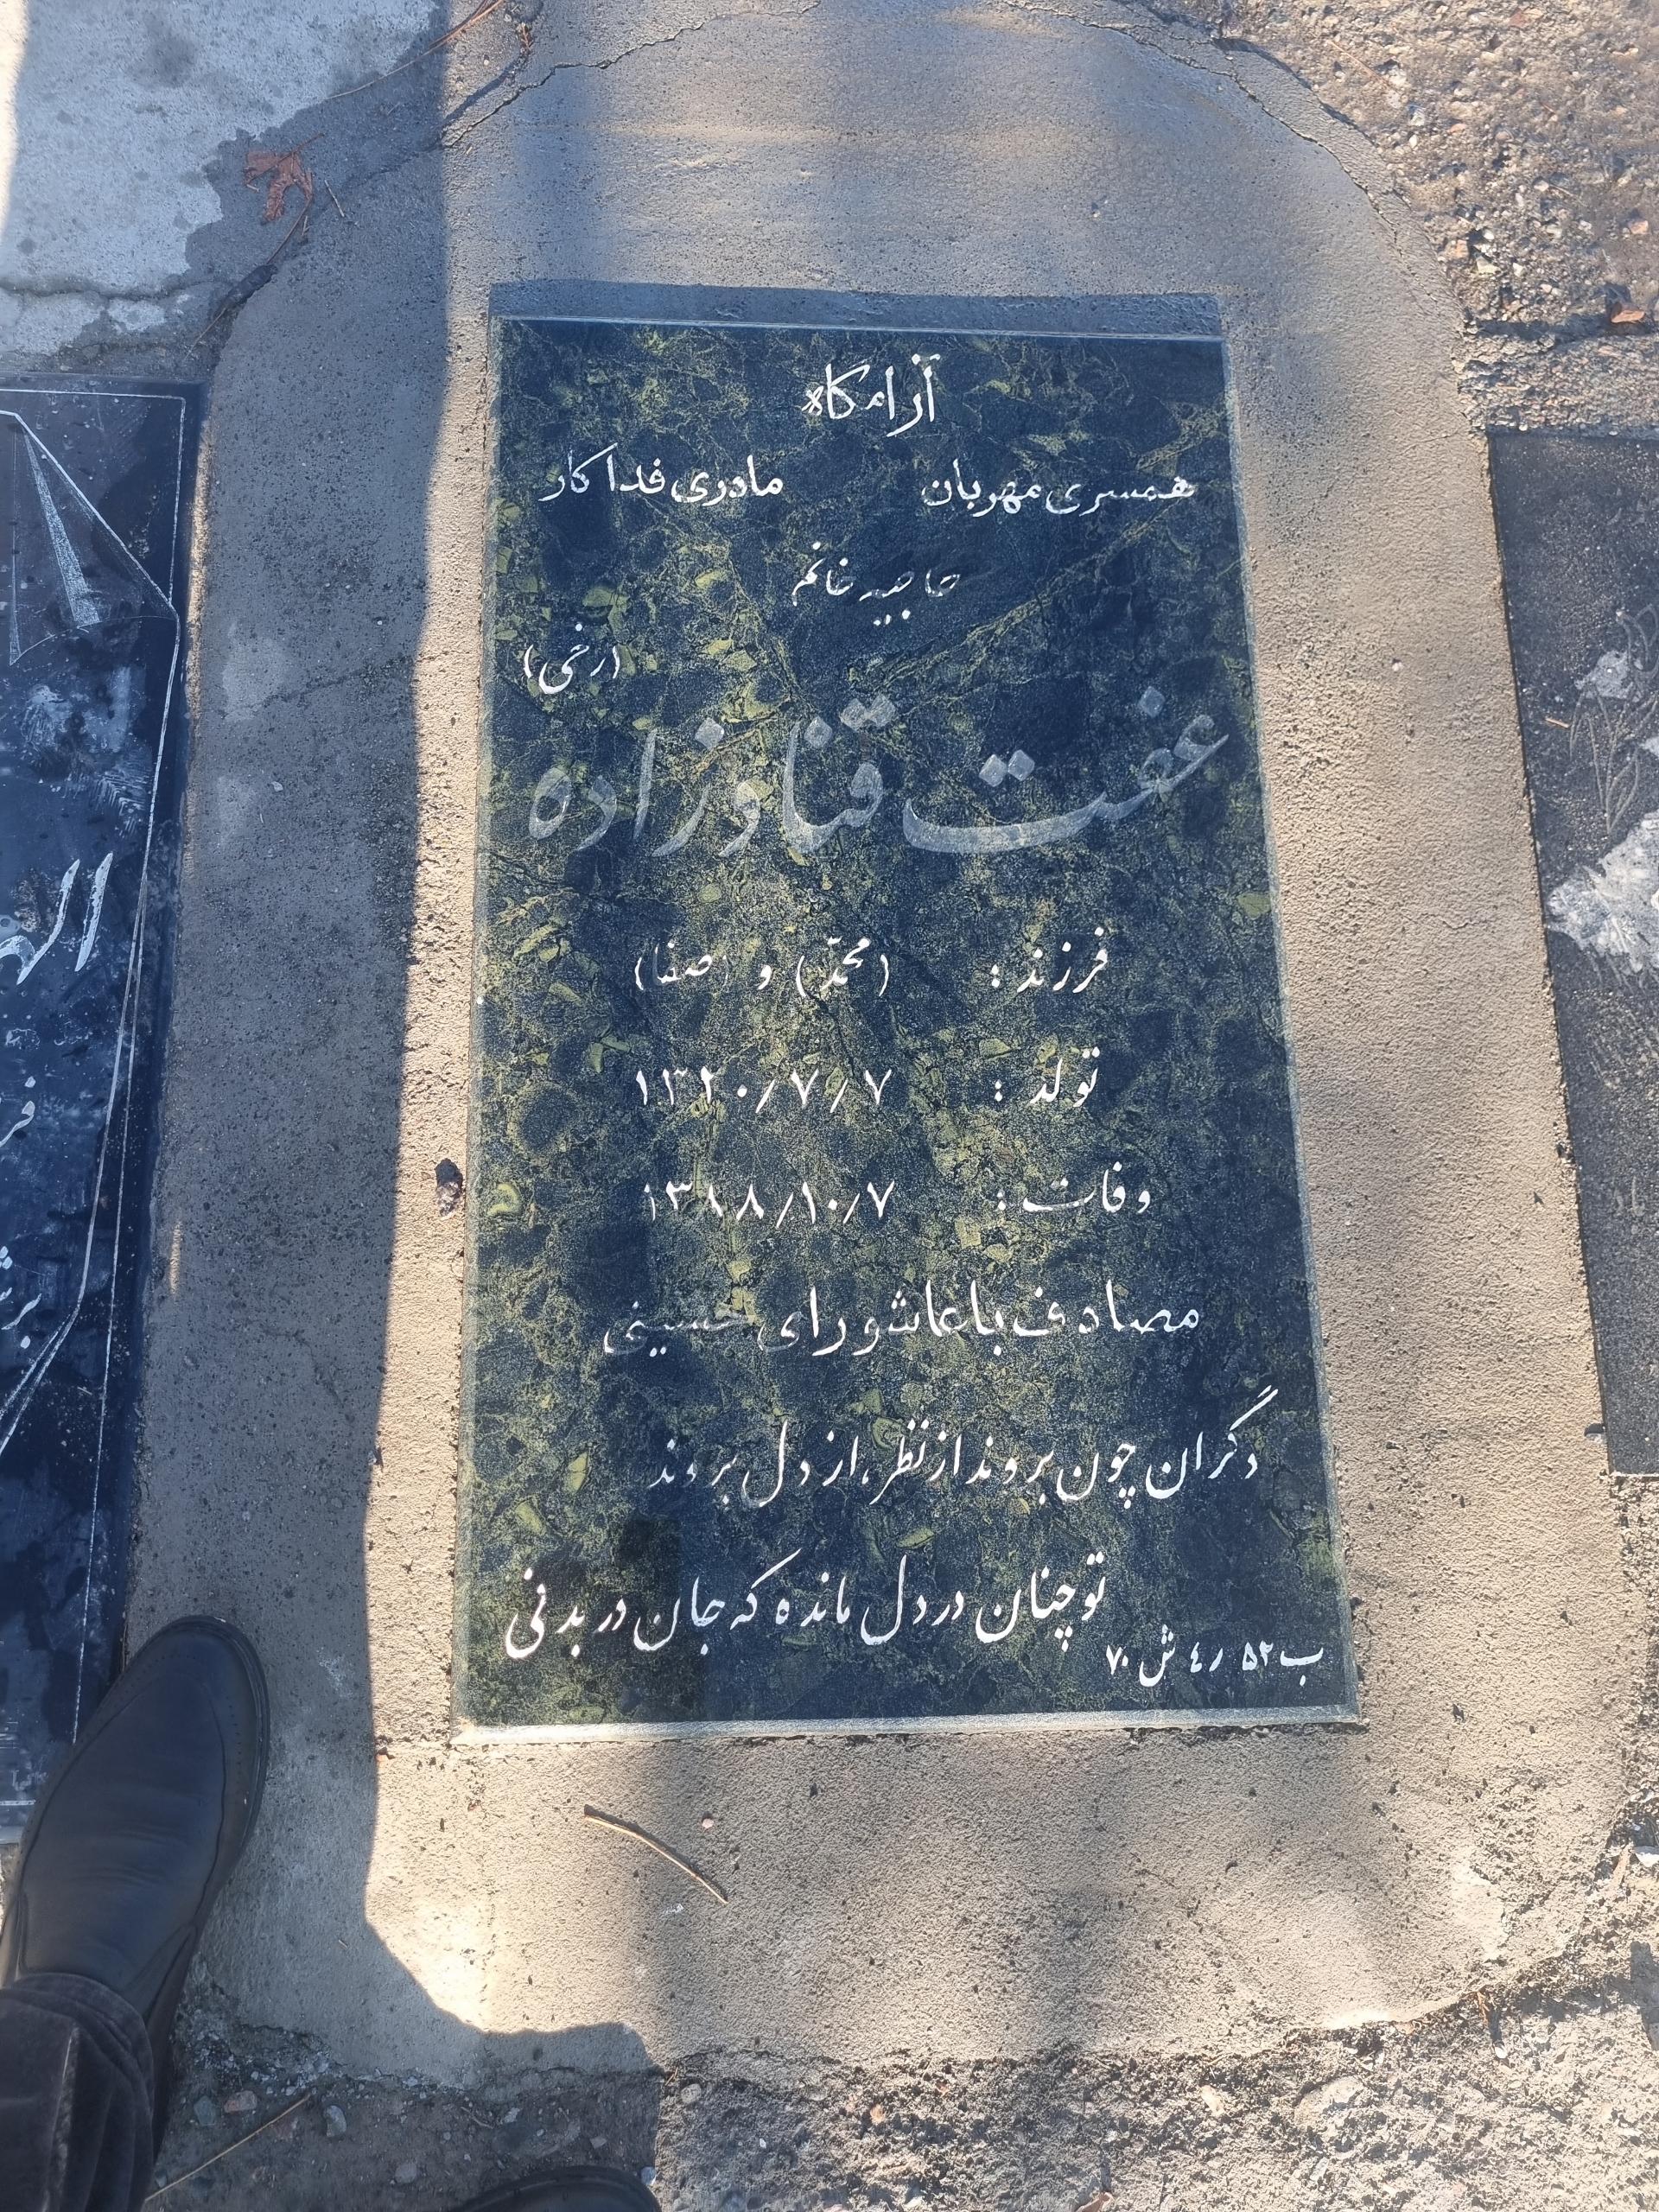 آرامگاه
همسری مهربان مادری فداکار
حاجیه خانم
(رخی)
عفت قناوزاده
فرزند : (محمّد) و (صفا)
تولد : ۱۳۲۰/۷/۷
وفات : ۱۳۸۸/۱۰/۷
مصادف با عاشورای حسینی
دگران چون بروند از نظر، از دل بروند
تو چنان در دل مانده که جان در بدنی
ب ۵۲ ر ٤ ش ۷۰
اله
فر